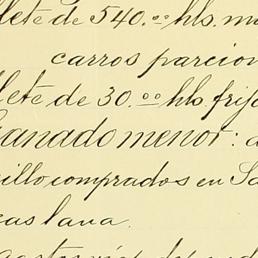 lete de 540.00 hls. m
carros parcion
lete de 30.00 hls. frij
Ganado menor: a
illo comprados en Sa
cas lana.